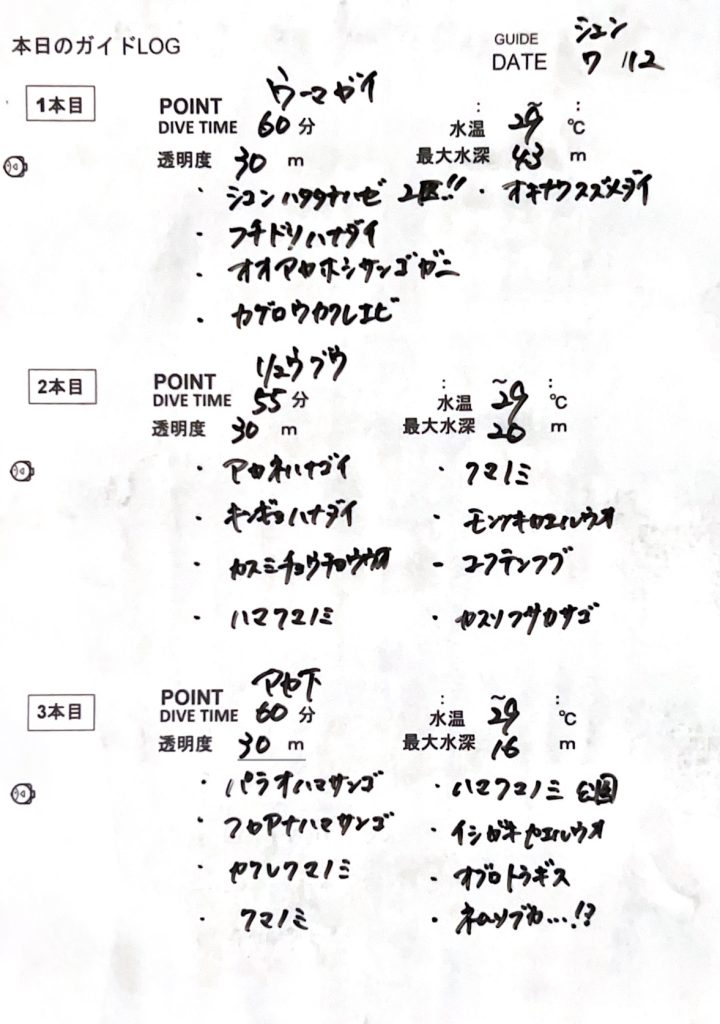 本日のガイドLOG
GUIDE シュン
DATE 7/12
1本目
POINT ウーマガイ
DIVE TIME 60分 水温 ~29℃
透明度 30m 最大水深 43m
・シコンハタタテハゼ 2匹!! ・オキナワスズメダイ
・フチドリハナダイ
・オオアカホシサンゴガニ
・カゲロウカクレエビ
2本目
POINT リュウグウ
DIVE TIME 55分 水温 ~29℃
透明度 30m 最大水深 20m
・アカネハナゴイ ・クマノミ
・キンギョハナダイ ・モンツキカエルウオ
・カスミチョウチョウウオ ・コクテンフグ
・ハマクマノミ ・カスリフサカサゴ
3本目
POINT アカ下
DIVE TIME 60分 水温 ~29℃
透明度 30m 最大水深 16m
・パラオハマサンゴ ・ハマクマノミ
・フカアナハマサンゴ ・イシガキカエルウオ
・カクレクマノミ ・オグロトラギス
・クマノミ ・ネムリブカ…!?